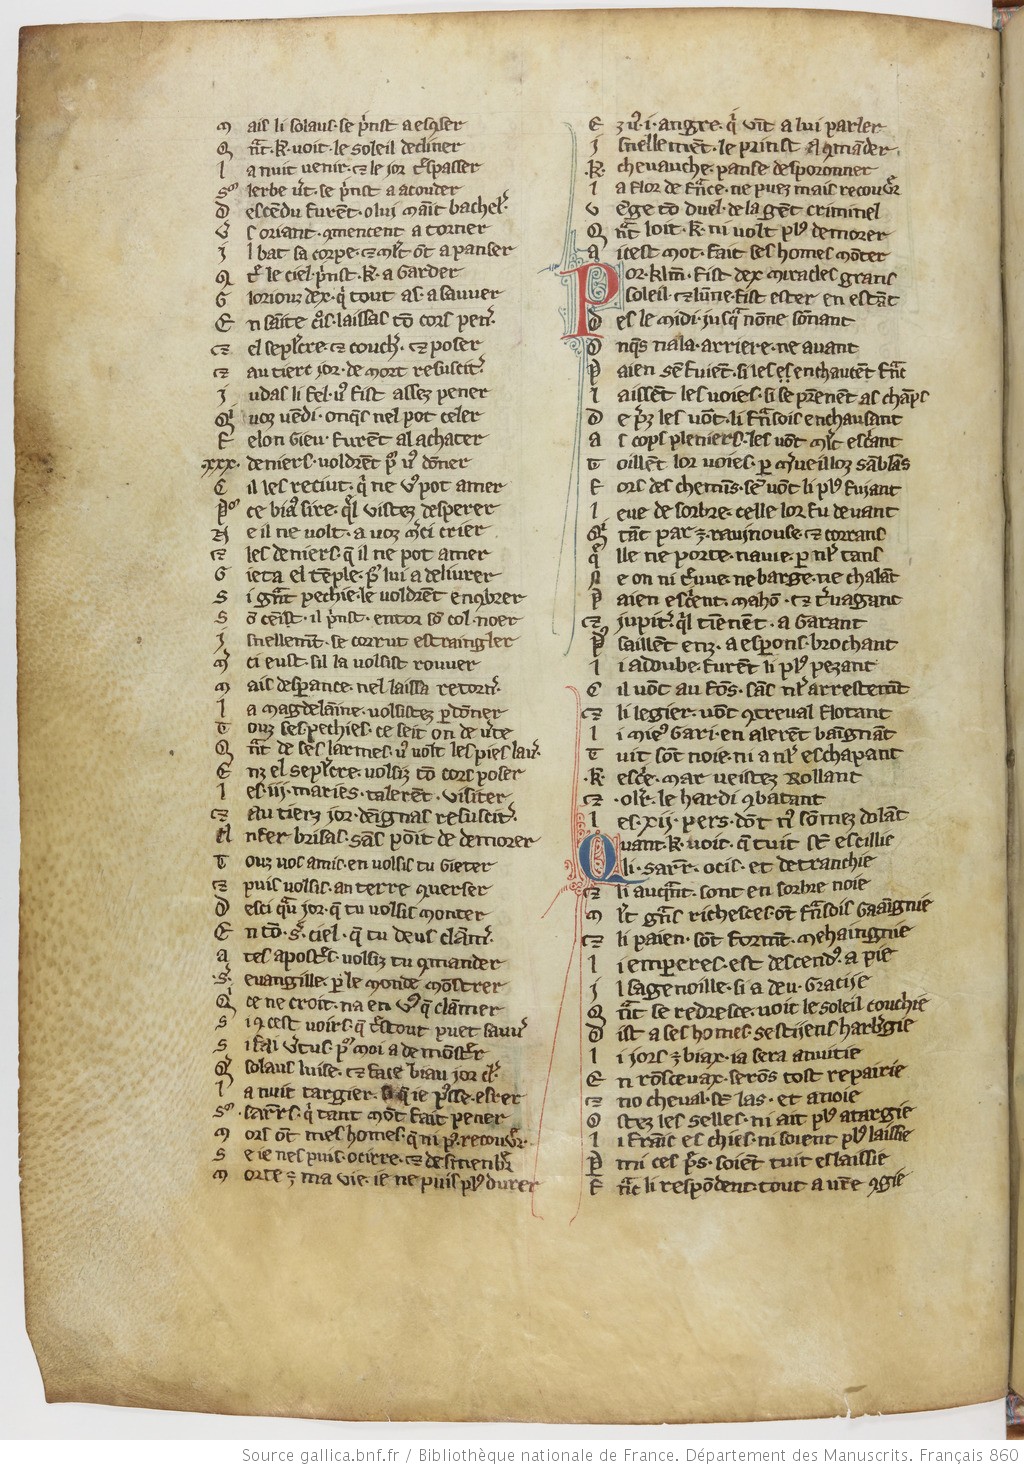 M ais li solaus se p͛nst a esq̃ser
Q nt̃ .k. voit le soleil decliner
L a nuit venir ⁊ le jor t͛spasser
S9 lerbe v͛t se p͛nst a acouder
D escẽdu furẽt o lui maĩt bachel͛
V s oriant 9mencent a torner
I l bat sa corpe ⁊ ml͛t ot a panser
Q t͛ le ciel p͛nst .k. a garder
G lorious dex qi tout as a sauver
E n saĩte c͛ois laissas tõ cors pen͛
⁊ el sepl͛cre ⁊ couch͛ ⁊ poser
⁊ au tierc jor de mort resuscit͛
I udas li fel u9 fist assez pener
Qi uoz vẽdi onq̃s nel pot celer
F elon gieu furẽt al achater
.xxx. deniers voldrẽt p͛ u9 dõner
C il les reciut qi ne v9 pot amer
P9 ce biau sire q̃l vistez desperer
N e il ne volt a voz m͛ci crier
⁊ les deniers q̃ il ne pot amer
G ieta el tẽple p͛ lui a delivrer
S i gñt pechie le voldrẽt enq̃brer
S õ ceĩst il p͛nst entor sõ col noer
I snellemt̃ se corrut estraingler
M͛ ci eust sil la volsist rouver
M ais desp͛ance nel laissa retorn͛
L a magdelaĩne volsistez p͛dõner
T ouz ses pechies ce seit on de v͛te
Q nt̃ de ses larmes u9 volt les pies lau͛
E nz el sepl͛cre volsiz tõ cors poser
L es .iij. maries talerẽt visiter
⁊ au tierz jor deignas resuscit͛
E nfer brisas sãs poĩt de demorer
T ouz vos amis en volsis tu gieter
⁊ puis volsis an terre 9verser
D esci qau jor q̃ tu volsis monter
E n tõ s͛ ciel q̃ tu deus clãm͛
A tes apost͛es volsiz tu 9mander
S͛ evangille p͛ le monde mõstrer
Qi ce ne croit na en v9 q̃ clãmer
S i 9 cest voirs q̃ t͛stout puet sauv͛
S i fai v͛tus p͛ moi a demõst͛r
Q͛ solaus luise ⁊ face biau jor cl͛
L a nuit targier si q̃ ie p9sse ester
S9 sarr͛s qi tant mõt fait pener
M ors õt mes homes q̃ ni p9 recouv͛r
S e ie nes puis ocirre ⁊ desmenbr͛
M orte ÷ ma vie ie ne puis pl9 durer
E z u9 .i. angre qi vĩt a lui parler
I snellemẽt le prinst a 9mãder
.K. chevauche panse desporonner
L a flor de fñce ne puez mais recouv͛r
V ẽge tõ duel de la gẽt criminel
Q nt̃ loit .k. ni volt pl9 demorer
A icest mot fait ses homes mõter
P or klm̃ fist dex miracles grans
L soleil ⁊ lũne fist ester en estãt
D es le midi jusqa nõne sõnant
O nq̃s nala arriere ne avant
P aien sẽ fuient si les es enchaucent fñc
L aissẽt les voies si se p͛nenẽt as chãps
D e p͛z les võt li fñsois enchausant
A s cops pleniers les võt ml͛t esc͛ant
T oillẽt lor voies p͛ m͛veilloz sãblãs
F ors des chemĩs sẽ võt li pl9 fuiant
L eue de sorbre celle lor fu devant
Qi tãt par ÷ ravinouse ⁊ corrans
Q͛ lle ne porte navie p͛ nl͛ tans
N e on ni t͛uve ne barge ne chalãt
P aien esc͛ient mahõ ⁊ t͛vagant
⁊ jupit͛ q̃l tiẽnẽt a garant
P͛ saillẽt enz a esporons brochant
L i adoube furẽt li pl9 pezant
C il võt au fõs sãs nl͛ arrestemt̃
⁊ li legier võt 9treval flotant
L i mie9 gari en alerẽt baĩgnãt
T uit sõt noie ni a nl͛ eschapant
.K. esc͛ie mar veistez rollant
⁊ .ol͛r. le hardi 9batant
L es .xij. pers dõt ni sõmez dolãt
Q uant .k. voit q̃ tuit st̃ escillie
Q li sarr͛ ocis et detranchie
⁊ li auqñt sont en sorbre noie
M l͛t gñs richesces õt fñsois gaaĩgnie
⁊ li paien sõt formt̃ mehaingnie
L i emperes est descend9 a pie
I l sagenoille si a deu gracije
Q nt̃ se redresce voit le soleil couchie
D ist a ses homes sestijens harb͛gie
L i jors ÷ biax ia sera anuitie
E n rõscevax serõs tost repairie
⁊ no cheval st̃ las et anoie
O stez les selles ni ait pl9 atargie
L i frain es chies ni soient pl9 laissie
P͛ mi ces p͛s soiẽt tuit eslaissie
F ñc li respõdent tout a vr͛e 9gie
Source gallica.bnf.fr / Bibliothèque nationale de France. Département des Manuscrits. Français 860